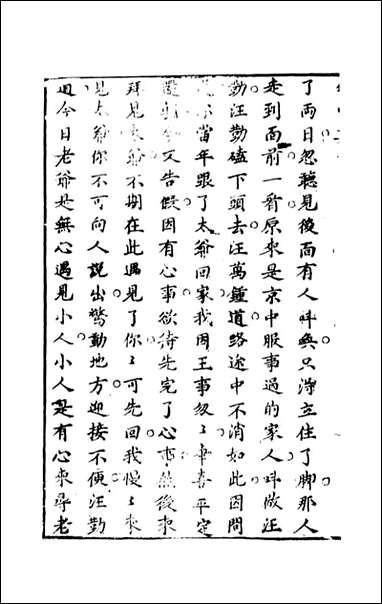 了兩日忽聽見後面有人呌喚只得立住了脚那人
走到面前一看原來是京中服事過的家人呌做汪
勤汪勤磕下頭去汪萬鍾道路途中不消如此因問
你當年跟了太爺回家我因王事匆〻幸喜平定
又告假因有心事欲待先完了心事然後來
拜見太爺不期在此遇見了你〻可先回我慢〻來
見太爺你不可向人說出驚動地方迎接不便汪勤
道今日老爺是無心遇見小人小人是有心來尋老